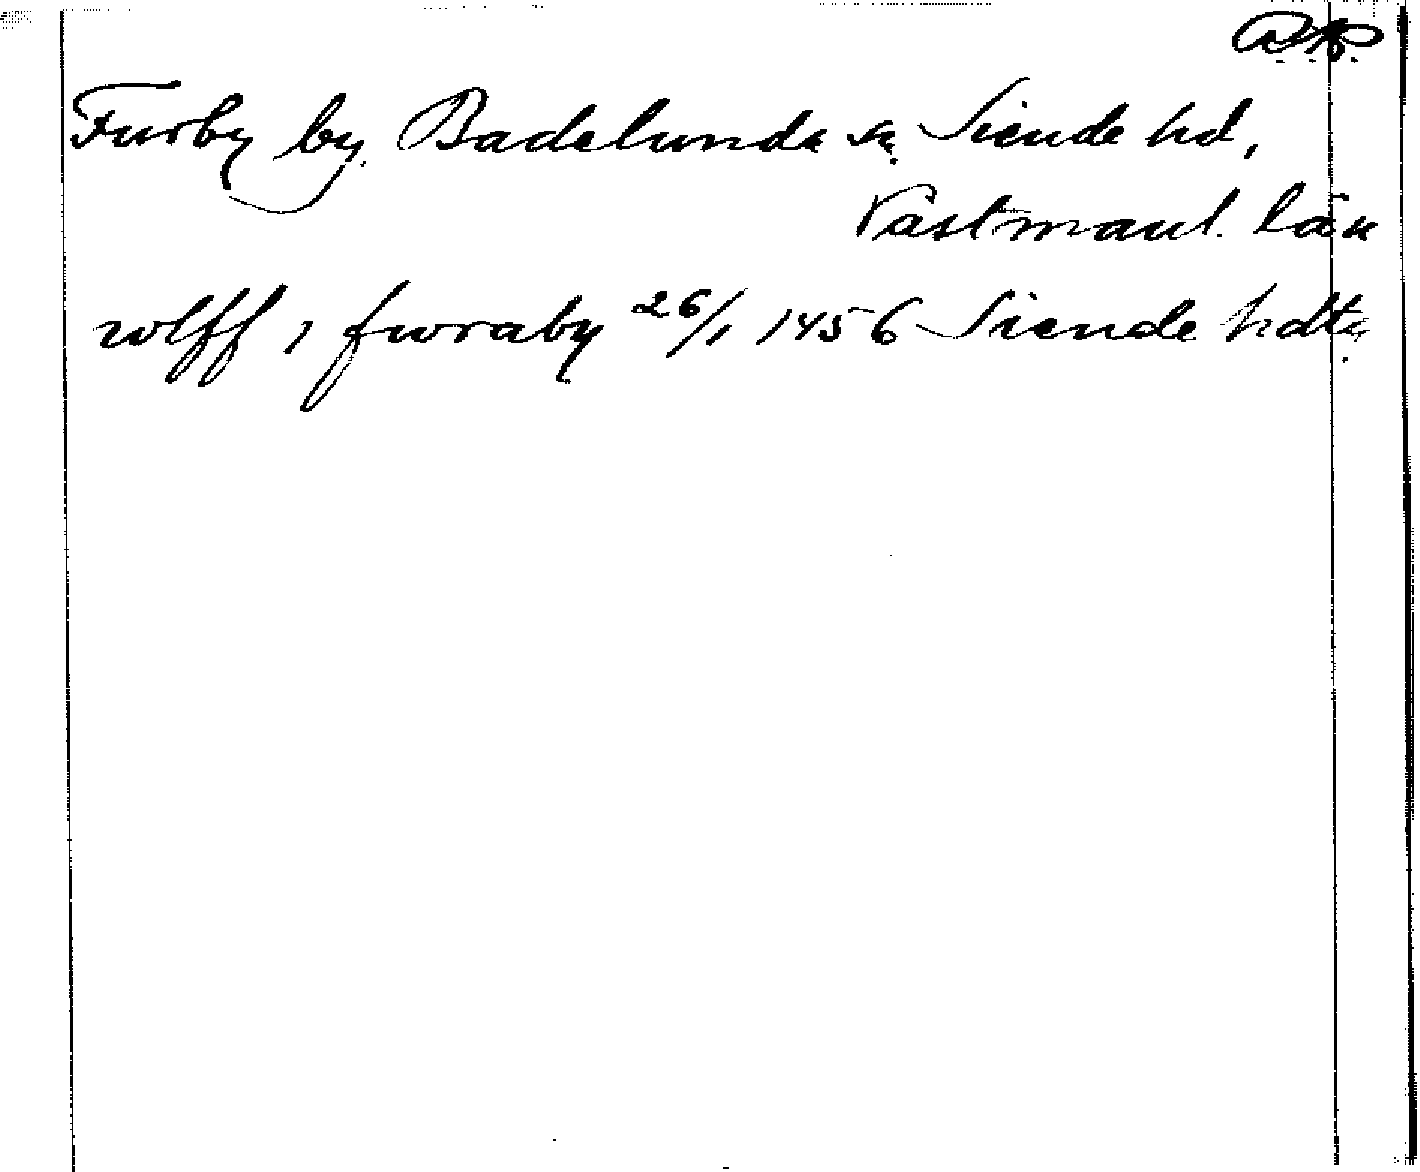 Furby by, Badelunda sn. Siende hd,
Västmanl. län
wlff i furaby 26/1 1456 Siende hdtg.